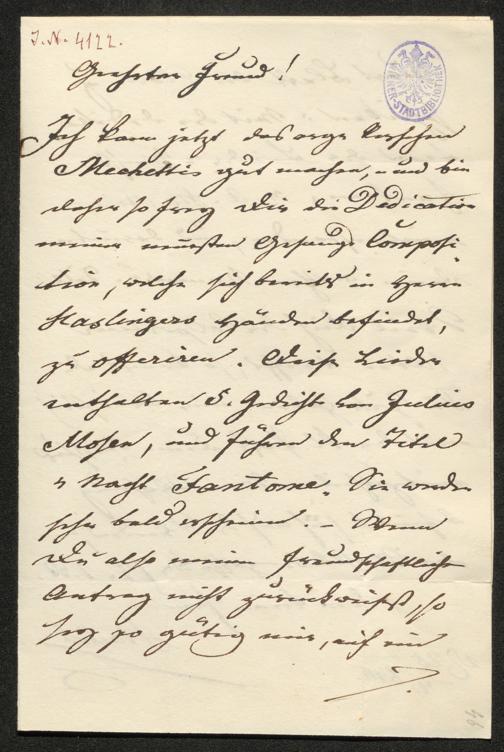 J.N. 4122.
WIENER-STADTBIBLIOTHEK
Geehrter Freund!
Ich kann jetzt das arge Versehen
Mechettis gut machen, – und bin
daher so frey Dir die Dedication
meiner neuesten Gesangs Composi-
tion, welche sich bereits in Herrn
Haslingers Händen befindet,
zu offeriren. Diese Lieder
enthalten 5. Gedichte von Julius
Mosen, und führen den Titel
"Nacht Fantome". Sie werden
sehr bald erscheinen. – Wenn
Du also meinen freundschaftlichen
Antrag nicht zurückweisest, so
sey so gütig mir, auf ein